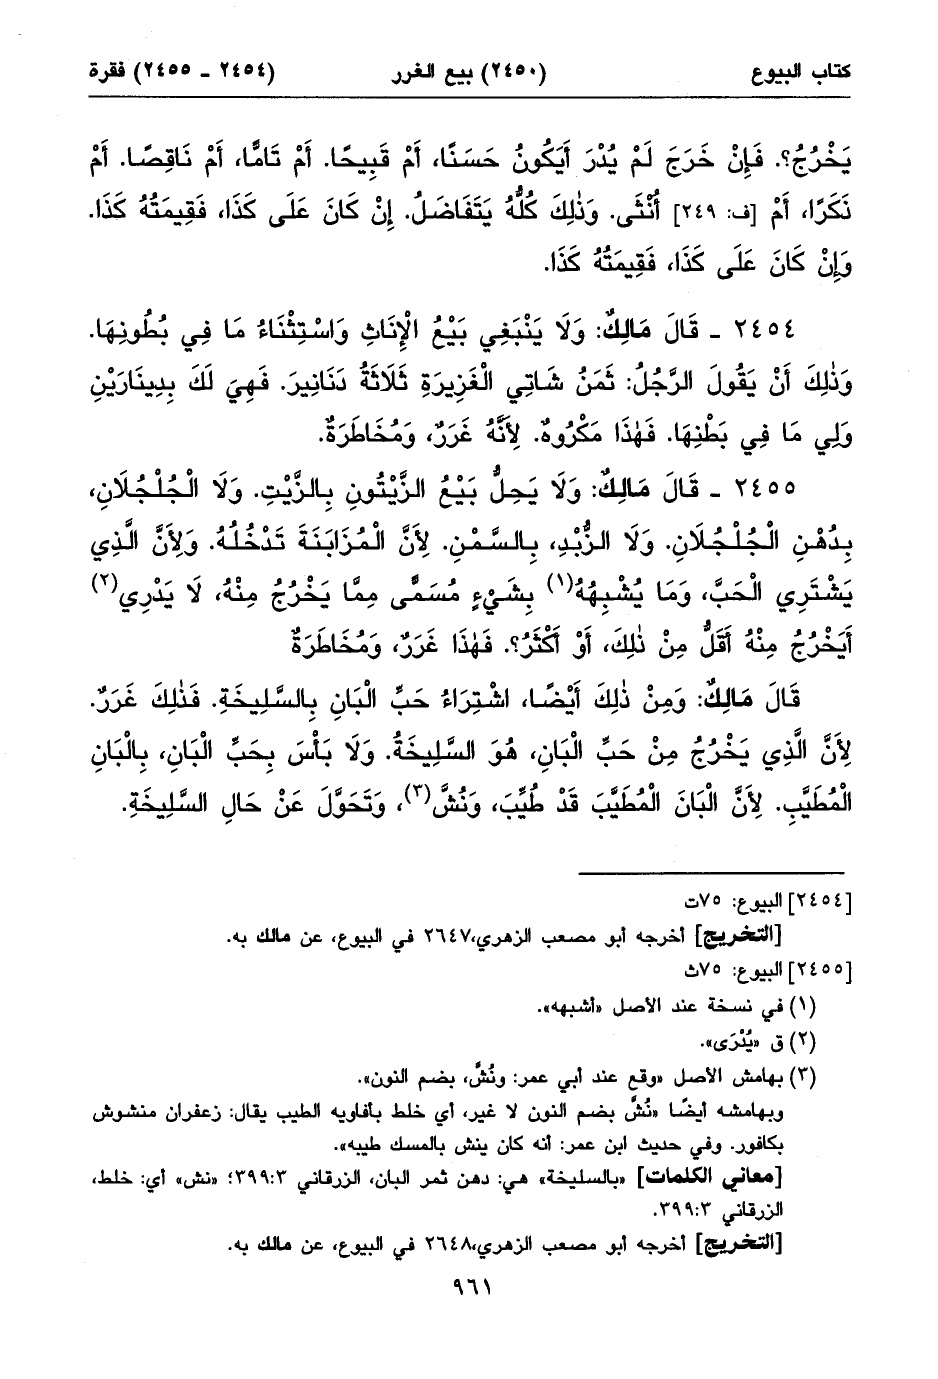 كتاب البيوع (٢٤٥٠) بيع الغرر (٢٤٥٤ - ٢٤٥٥) فقرة
يَخْرُجُ؟. فَإِنْ خَرَجَ لَمْ يُدْرَ أَيَكُونُ حَسَنًا، أَمْ قَبِيحًا. أَمْ تَامًّا، أَمْ نَاقِصًا. أَمْ
ذَكَرًا، أَمْ [ف: ٢٤٩] أُنْثَى. وَذٰلِكَ كُلُّهُ يَتَفَاضَلُ. إِنْ كَانَ عَلَى كَذَا، فَقِيمَتُهُ كَذَا.
وَإِنْ كَانَ عَلَى كَذَا، فَقِيمَتُهُ كَذَا.
٢٤٥٤ - قَالَ مَالِكٌ: وَلَا يَنْبَغِي بَيْعُ الْإِنَاثِ وَاسْتِثْنَاءُ مَا فِي بُطُونِهَا.
وَذٰلِكَ أَنْ يَقُولَ الرَّجُلُ: ثَمَنُ شَاتِي الْغَزِيرَةِ ثَلَاثَةُ دَنَانِيرَ. فَهِيَ لَكَ بِدِينَارَيْنِ
وَلِي مَا فِي بَطْنِهَا. فَهٰذَا مَكْرُوهٌ. لِأَنَّهُ غَرَرٌ، وَمُخَاطَرَةٌ.
٢٤٥٥ - قَالَ مَالِكٌ: وَلَا يَحِلُّ بَيْعُ الزَّيْتُونِ بِالزَّيْتِ. وَلَا الْجُلْجُلَانِ،
بِدُهْنِ الْجُلْجُلَانِ. وَلَا الزُّبْدِ، بِالسَّمْنِ. لِأَنَّ الْمُزَابَنَةَ تَدْخُلُهُ. وَلِأَنَّ الَّذِي
يَشْتَرِي الْحَبَّ، وَمَا يُشْبِهُهُ(١) بِشَيْءٍ مُسَمًّى مِمَّا يَخْرُجُ مِنْهُ، لَا يَدْرِي(٢)
أَيَخْرُجُ مِنْهُ أَقَلُّ مِنْ ذٰلِكَ، أَوْ أَكْثَرُ؟. فَهٰذَا غَرَرٌ، وَمُخَاطَرَةٌ
قَالَ مَالِكٌ: وَمِنْ ذٰلِكَ أَيْضًا، اشْتِرَاءُ حَبِّ الْبَانِ بِالسَّلِيخَةِ. فَذٰلِكَ غَرَرٌ.
لِأَنَّ الَّذِي يَخْرُجُ مِنْ حَبِّ الْبَانِ، هُوَ السَّلِيخَةُ. وَلَا بَأْسَ بِحَبِّ الْبَانِ، بِالْبَانِ
الْمُطَيَّبِ. لِأَنَّ الْبَانَ الْمُطَيَّبَ قَدْ طُيِّبَ، وَنُشَّ(٣)، وَتَحَوَّلَ عَنْ حَالِ السَّلِيخَةِ.
[٢٤٥٤] البيوع: ٧٥ت
[التخريج] أخرجه أبو مصعب الزهري،٢٦٤٧ في البيوع، عن مالك به.
[٢٤٥٥] البيوع: ٧٥ث
(١) في نسخة عند الأصل «أشبهه».
(٢) ق «يُدْرَى».
(٣) بهامش الأصل «وقع عند أبي عمر: ونُشَّ، بضم النون».
وبهامشه أيضًا «نُشَّ بضم النون لا غير، أي خلط بأفاويه الطيب يقال: زعفران منشوش
بكافور. وفي حديث ابن عمر: أنه كان ينش بالمسك طيبه».
[معاني الكلمات] «بالسليخة» هي: دهن ثمر البان، الزرقاني ٣٩٩:٣؛ «نش» أي: خلط،
الزرقاني ٣٩٩:٣.
[التخريج] أخرجه أبو مصعب الزهري،٢٦٤٨ في البيوع، عن مالك به.
٩٦١